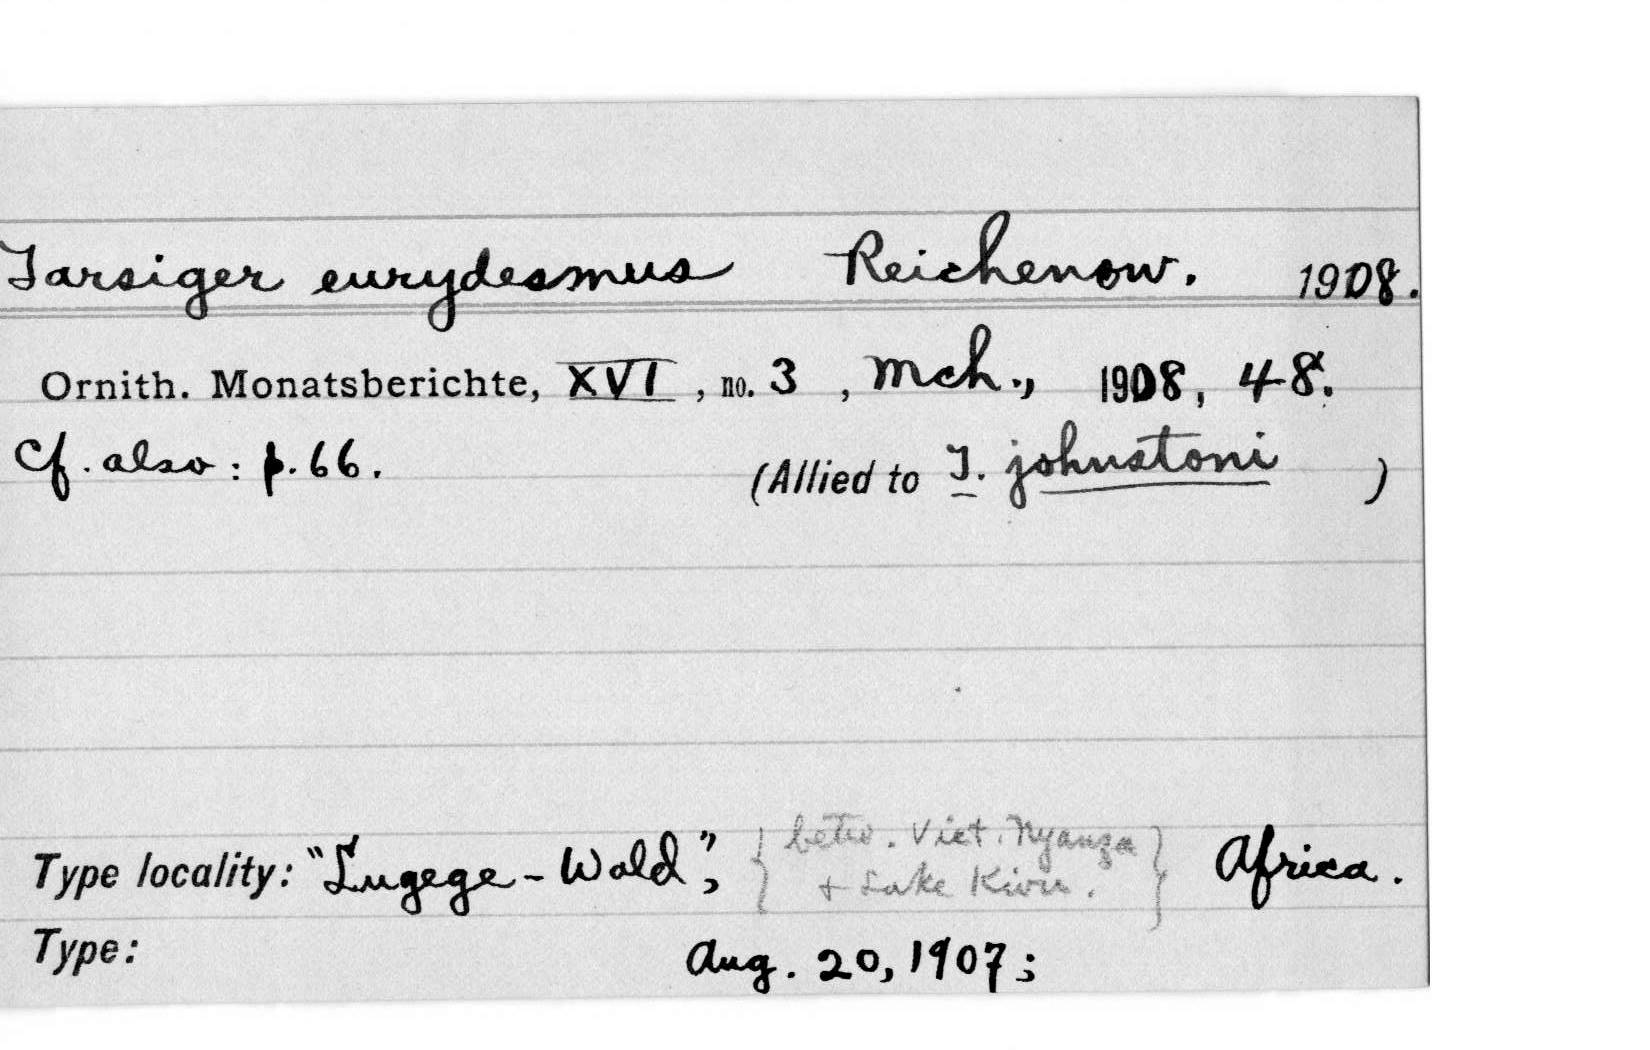 Tarsiger eurydesmus Reichenow. 1908.
Ornith. Monatsberichte, XVI, no. 3, Mch., 1908, 48.
Cf. also: p. 66. (Allied to T. johnstoni )
Type locality: "Lugege-Wald", {betw. Vict. Nyanza
+ Lake Kivu.} Africa.
Type: Aug. 20, 1907;